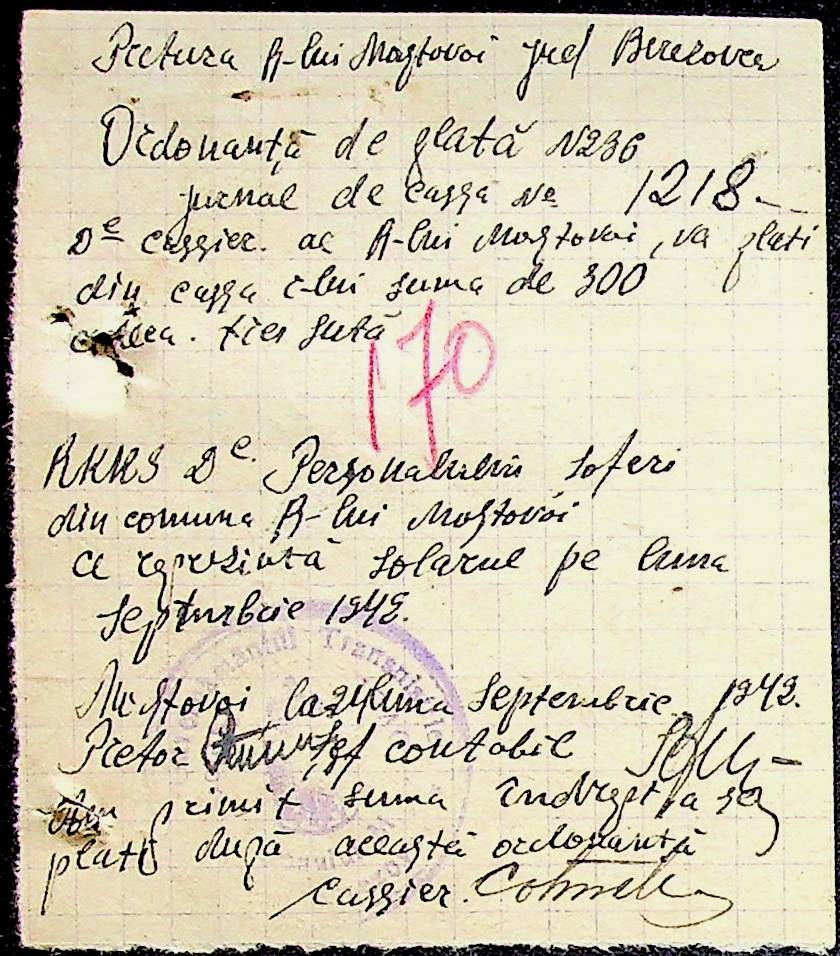 Pretura R-lui Mostovoi jud Berezovca
Ordonanță de plată N236
jurnal de cassa № 1218-
De cassier. al R-lui Mostovoi, va plati
din cassa c-lui suma de 300
adica. trei sută
170
RKKS De. Personalului soferi
din comuna R-lui Mostovoi
ce reprezintă solarul pe luna
Septembrie 1942.
Mostovoi la 24 luna Septembrie 1942.
Pretor Șef contabil
Am primit suma îndrept a se
plati după această ordonanță
cassier.
Guvernământul Transnistriei